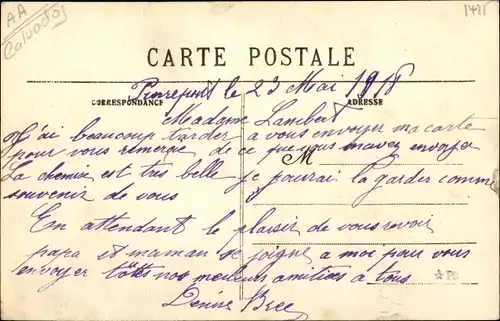 AA
Calvados
CARTE POSTALE
Pierrepont le 23 Mai 1918
CORRESPONDANCE ADRESSE
Madame Lambert
J'ai beaucoup tarder a vous envoyer ma carte
pour vous remercie de ce que vous mavez envoyer
M
La chemise est tres belle je pourai la garder comme
souvenir de vous
En attendant le plaisir de vous revoir
papa et maman se joigne a moi pour vous
envoyer toutes nos meilleurs amitiees a tous
Denise